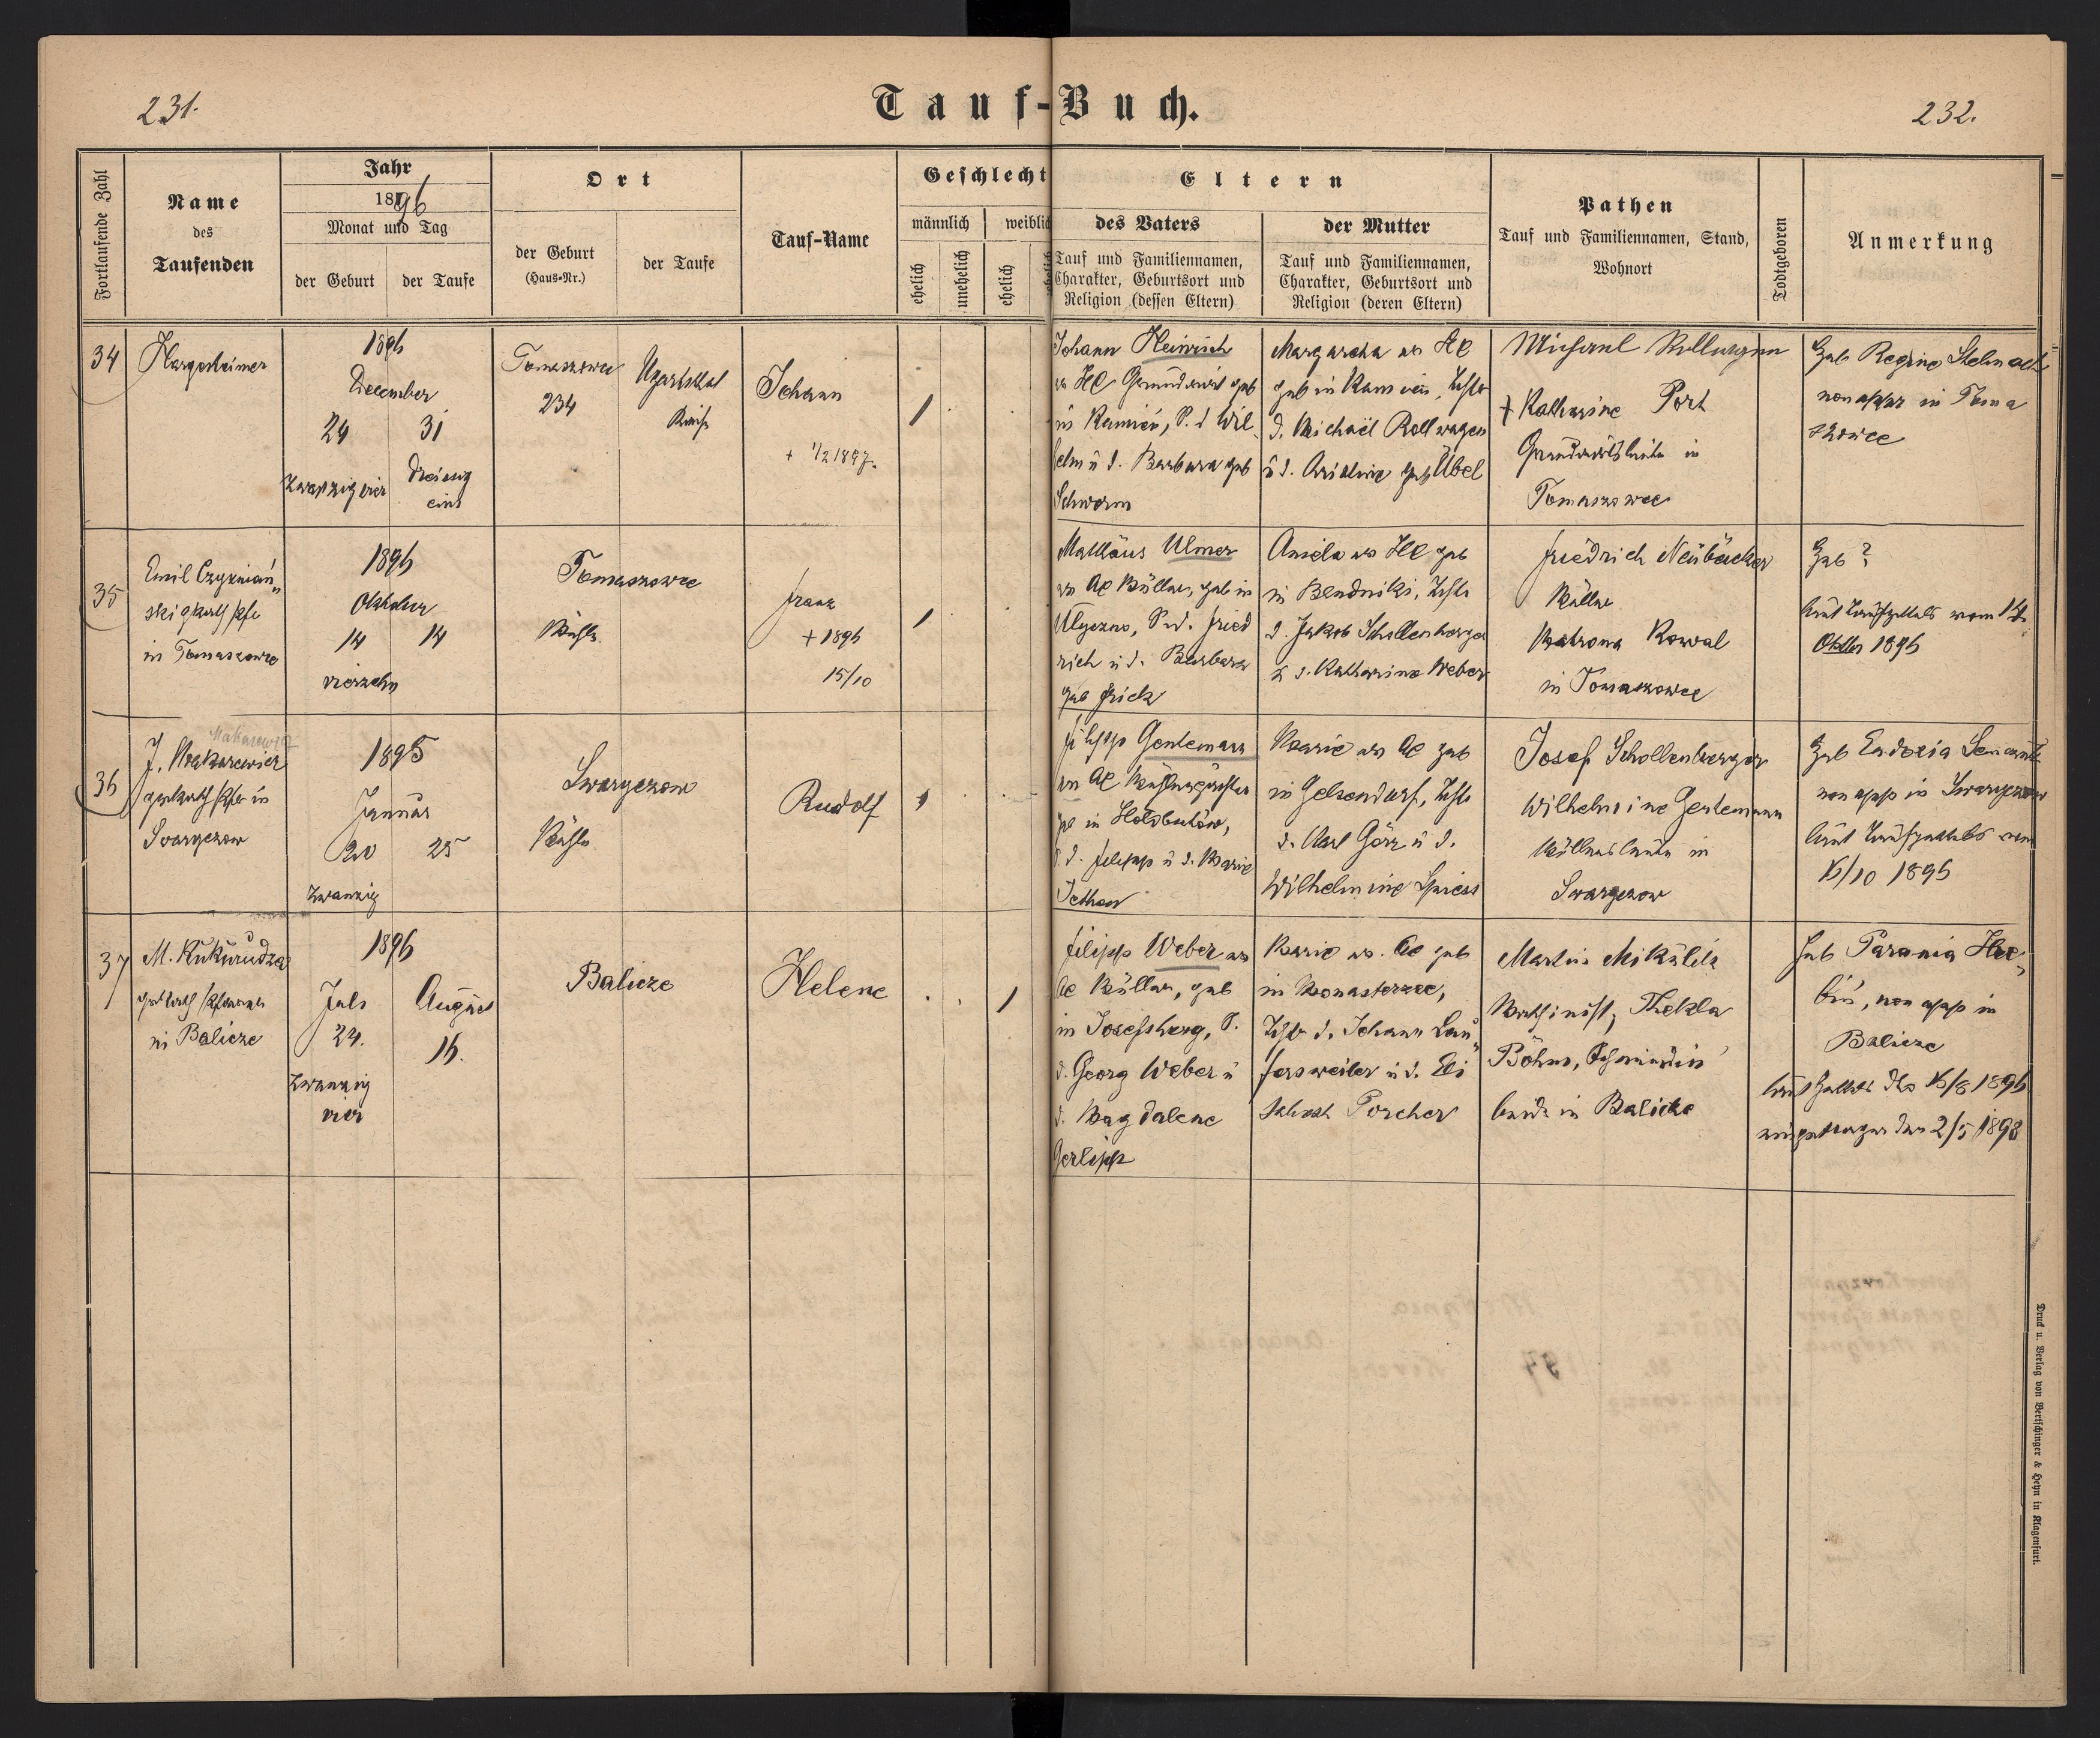 231.
Tauf-Buch.
232.
Fortlaufende Zahl
Name
des
Taufenden
Jahr
1896
Monat und Tag
der Geburt
der Taufe
Ort
der Geburt
(Haus-Nr.)
der Taufe
Tauf-Name
Geschlecht
männlich
weiblich
ehelich
unehelich
ehelich
Eltern
des Vaters
Tauf und Familiennamen,
Charakter, Geburtsort und
Religion (dessen Eltern)
der Mutter
Tauf und Familiennamen,
Charakter, Geburtsort und
Religion (deren Eltern)
Pathen
Tauf und Familiennamen, Stand,
Wohnort
Todtgeboren
Anmerkung
34
Hargesheimer
1896
December
24
31
Zwanzig vier
Dreissig
eins
Tomaszowce
234
Ugartsthal
Johann
+ 1/2 1897.
Johann Heinrich
in Kamień, S. d Wil
helm u d. Barbara geb
Schwarm
Margaretha
geb in Kamień, Tochter
d. Michael Rollwagen
u d. geb Übel
Michael Rollwagen
+ Katharine Port
Grundwirthsleute in
Tomaszowce
Geb Regina Stelmach
non appr in Toma
szowce
35
Emil Czyrniań
ski
in Tomaszowce
1896
Oktober
14
14
vierzehn
Tomaszowce
Mühle
Franz
+ 1896
15/10
Mathäus Ulmer
Müller, geb in
S. d. Fried
rich u d. Barbara
geb Frick
Aniela
in Bendniki, Tochter
d. Jakob Schollenberger
u d. Katharina Weber
Friedrich Neubäcker
Müller
Matrona Kowal
in Tomaszowce
Geb ?
laut Taufzettels vom 14.
Oktober 1896
36
Makarewicz
J. Makarewicz
Swaryczow
1896
Januar
20
25
Zwanzig
Swaryczow
Mühle
Rudolf
Filipp Gentemann
d. Filipp u d. Marie
Marie geb
in Gelsendorf, Tochter
d. Karl Görz u d.
Wilhelmine Spiess
Josef Schollenberger
Wilhelmine Gentemann
Müllersleute in
Swaryczow
Geb Eudoxia
non app in Swaryczow
laut Taufzettels vom
/10 1896
37
M. Kukurudza
in Balicze
1896
Juli
24.
Zwanzig
vier
August
16.
Balicze
Helene
Filipp Weber
Müller, geb
in Josefsberg, S.
d. Georg Weber u
d. Magdalene
Gerlipp
Marie geb
in Monasterzec,
Tochter d. Johann Lau
fersweiler u d. Eli
sabeth Porcher
Martin Mikulik
Maschinist, Thekla
Böhm, Schmiedin
beide in Balicze
Geb Parania
non app in
Balicze
laut Zettels dto 16/8 1896
eingetragen den 2/5 1898
Druck u. Verlag von Bertschinger & Heyn in Klagenfurt.